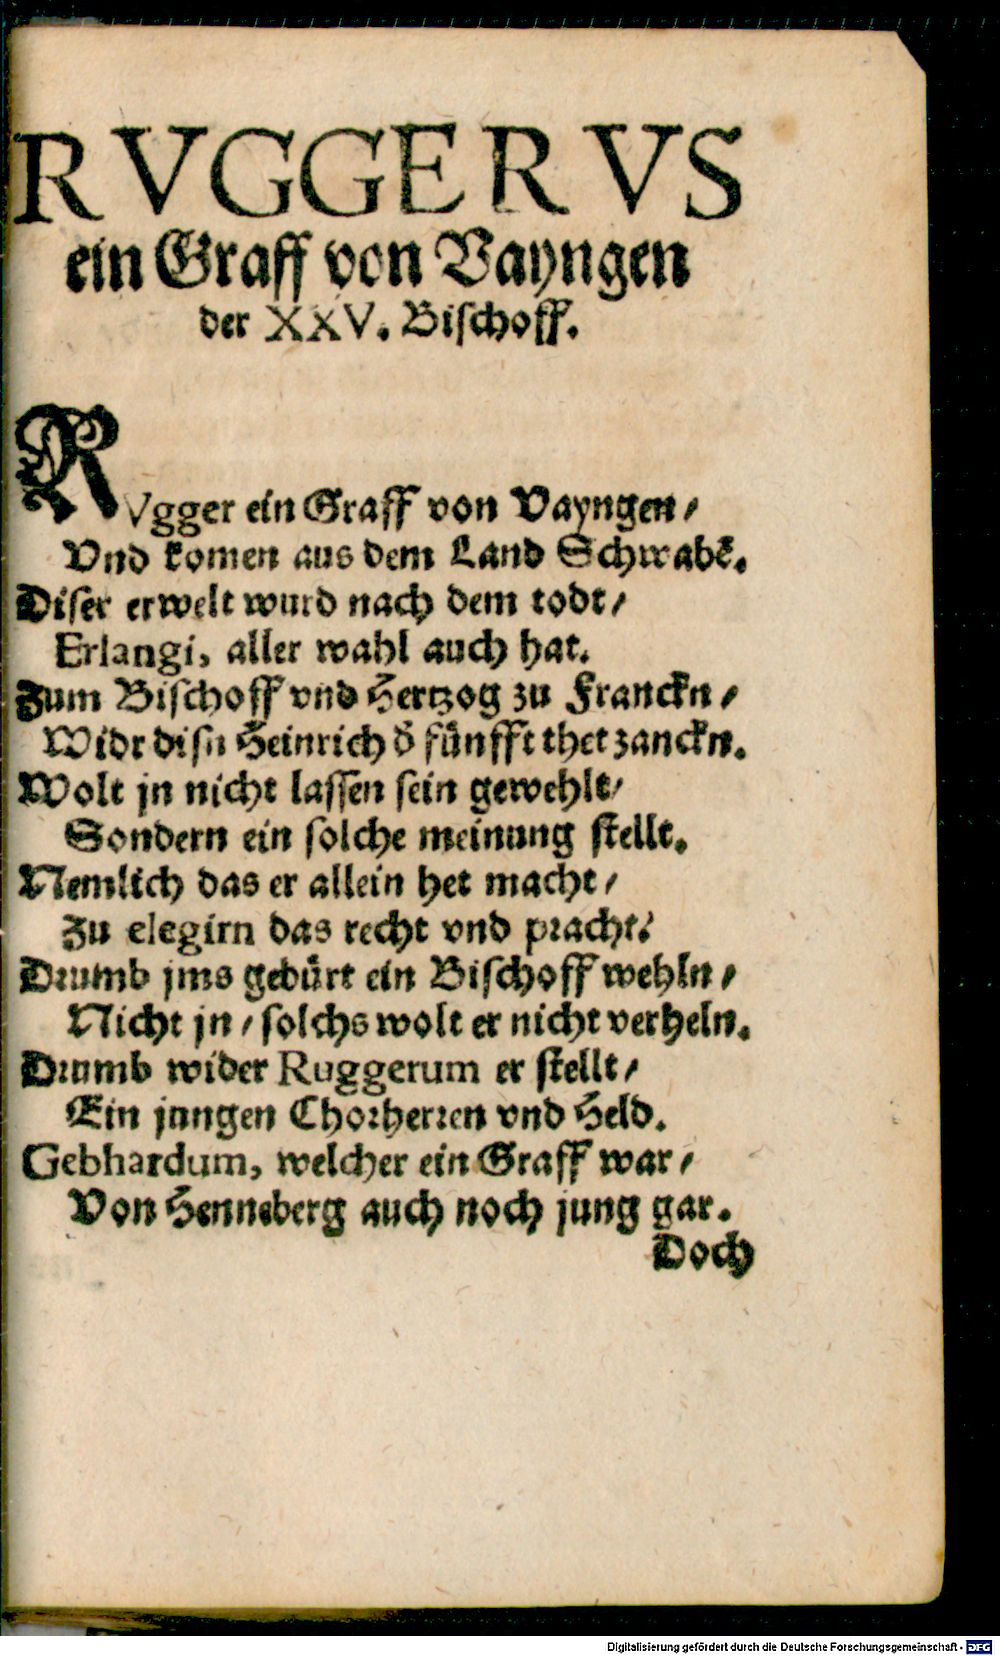 RVGGERVS
ein Graff von Vayngen
der XXV. Bischoff.
RVgger ein Graff von Vayngen/
Vnd komen aus dem Land Schwabē.
Diser erwelt wurd nach dem todt/
Erlangi, aller wahl auch hat.
Zum Bischoff vnd Hertzog zu Franckn/
Widr disn Heinrich d̕ fünfft thet zanckn.
Wolt jn nicht lassen sein gewehlt/
Sondern ein solche meinung stellt.
Nemlich das er allein het macht/
Zu elegirn das recht vnd pracht:
Drumb jms gebürt ein Bischoff wehln/
Nicht jn/ solchs wolt er nicht verheln.
Drumb wider Ruggerum er stellt/
Ein jungen Chorherren vnd Held.
Gebhardum, welcher ein Graff war/
Von Henneberg auch noch jung gar.
Doch
Digitalisierung gefördert durch die Deutsche Forschungsgemeinschaft - DFG